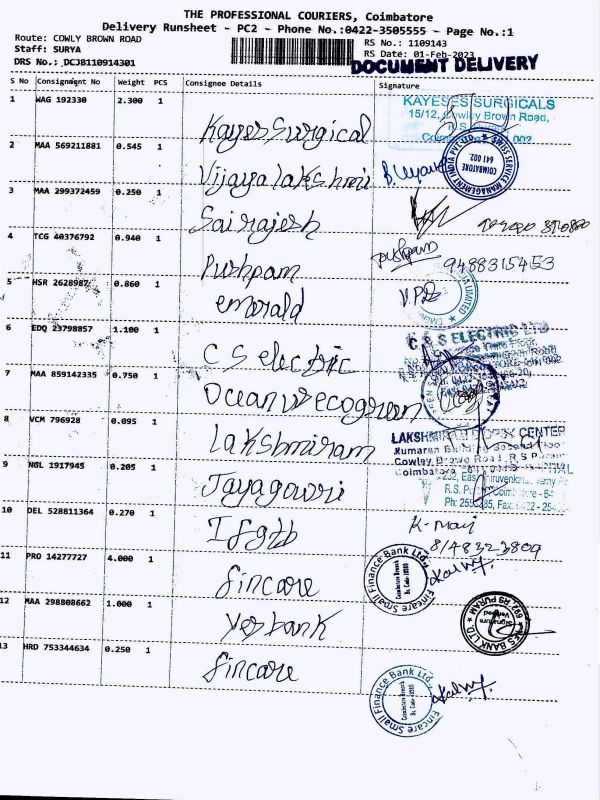 THE PROFESSIONAL COURIERS, Coimbatore
Delivery Runsheet - PC2 - Phone No.:0422-3505555 - Page No.:1
Route: COWLY BROWN ROAD
Staff: SURYA
DRS No.: DCJB110914301
RS No.: 1109143
RS Date: 01-Feb-2023
DOCUMENT DELIVERY
S No Consignment No Weight PCS Consignee Details Signature
1 WAG 192330 2.300 1 Kayes Surgical
KAYESES SURGICALS
15/12, Cowley Brown Road,
2 MAA 569211881 0.545 1 Vijayalakshmi
SWISS SERVICE MANAGEMENT INDIA PVT LTD
COIMBATORE
641 002.
3 MAA 299372459 0.250 1 Sairajesh
4 TCG 40376792 0.940 1 Pushpam
pushpam
9488315453
5 HSR 2628987 0.860 1 emerald
6 EDQ 23798857 1.100 1 C S electric
C & S ELECTRIC LTD
7 MAA 859142335 0.750 1 Ocean wecogreen
8 VCM 796928 0.095 1 Lakshmiram
LAKSHMIRAM XEROX CENTER
Cowley Brown Road, R S Puram
Coimbatore
9 NGL 1917945 0.205 1 Jayagowri
10 DEL 528811364 0.270 1 Ifgtb
11 PRO 14277727 4.000 1 fincare
Fincare Small Finance Bank Ltd.
Coimbatore Branch
12 MAA 298808662 1.000 1 Yesbank
YES BANK LTD
Signature
Verified
RS PURAM
13 HRD 753344634 0.250 1 fincare
Fincare Small Finance Bank Ltd.
Coimbatore Branch